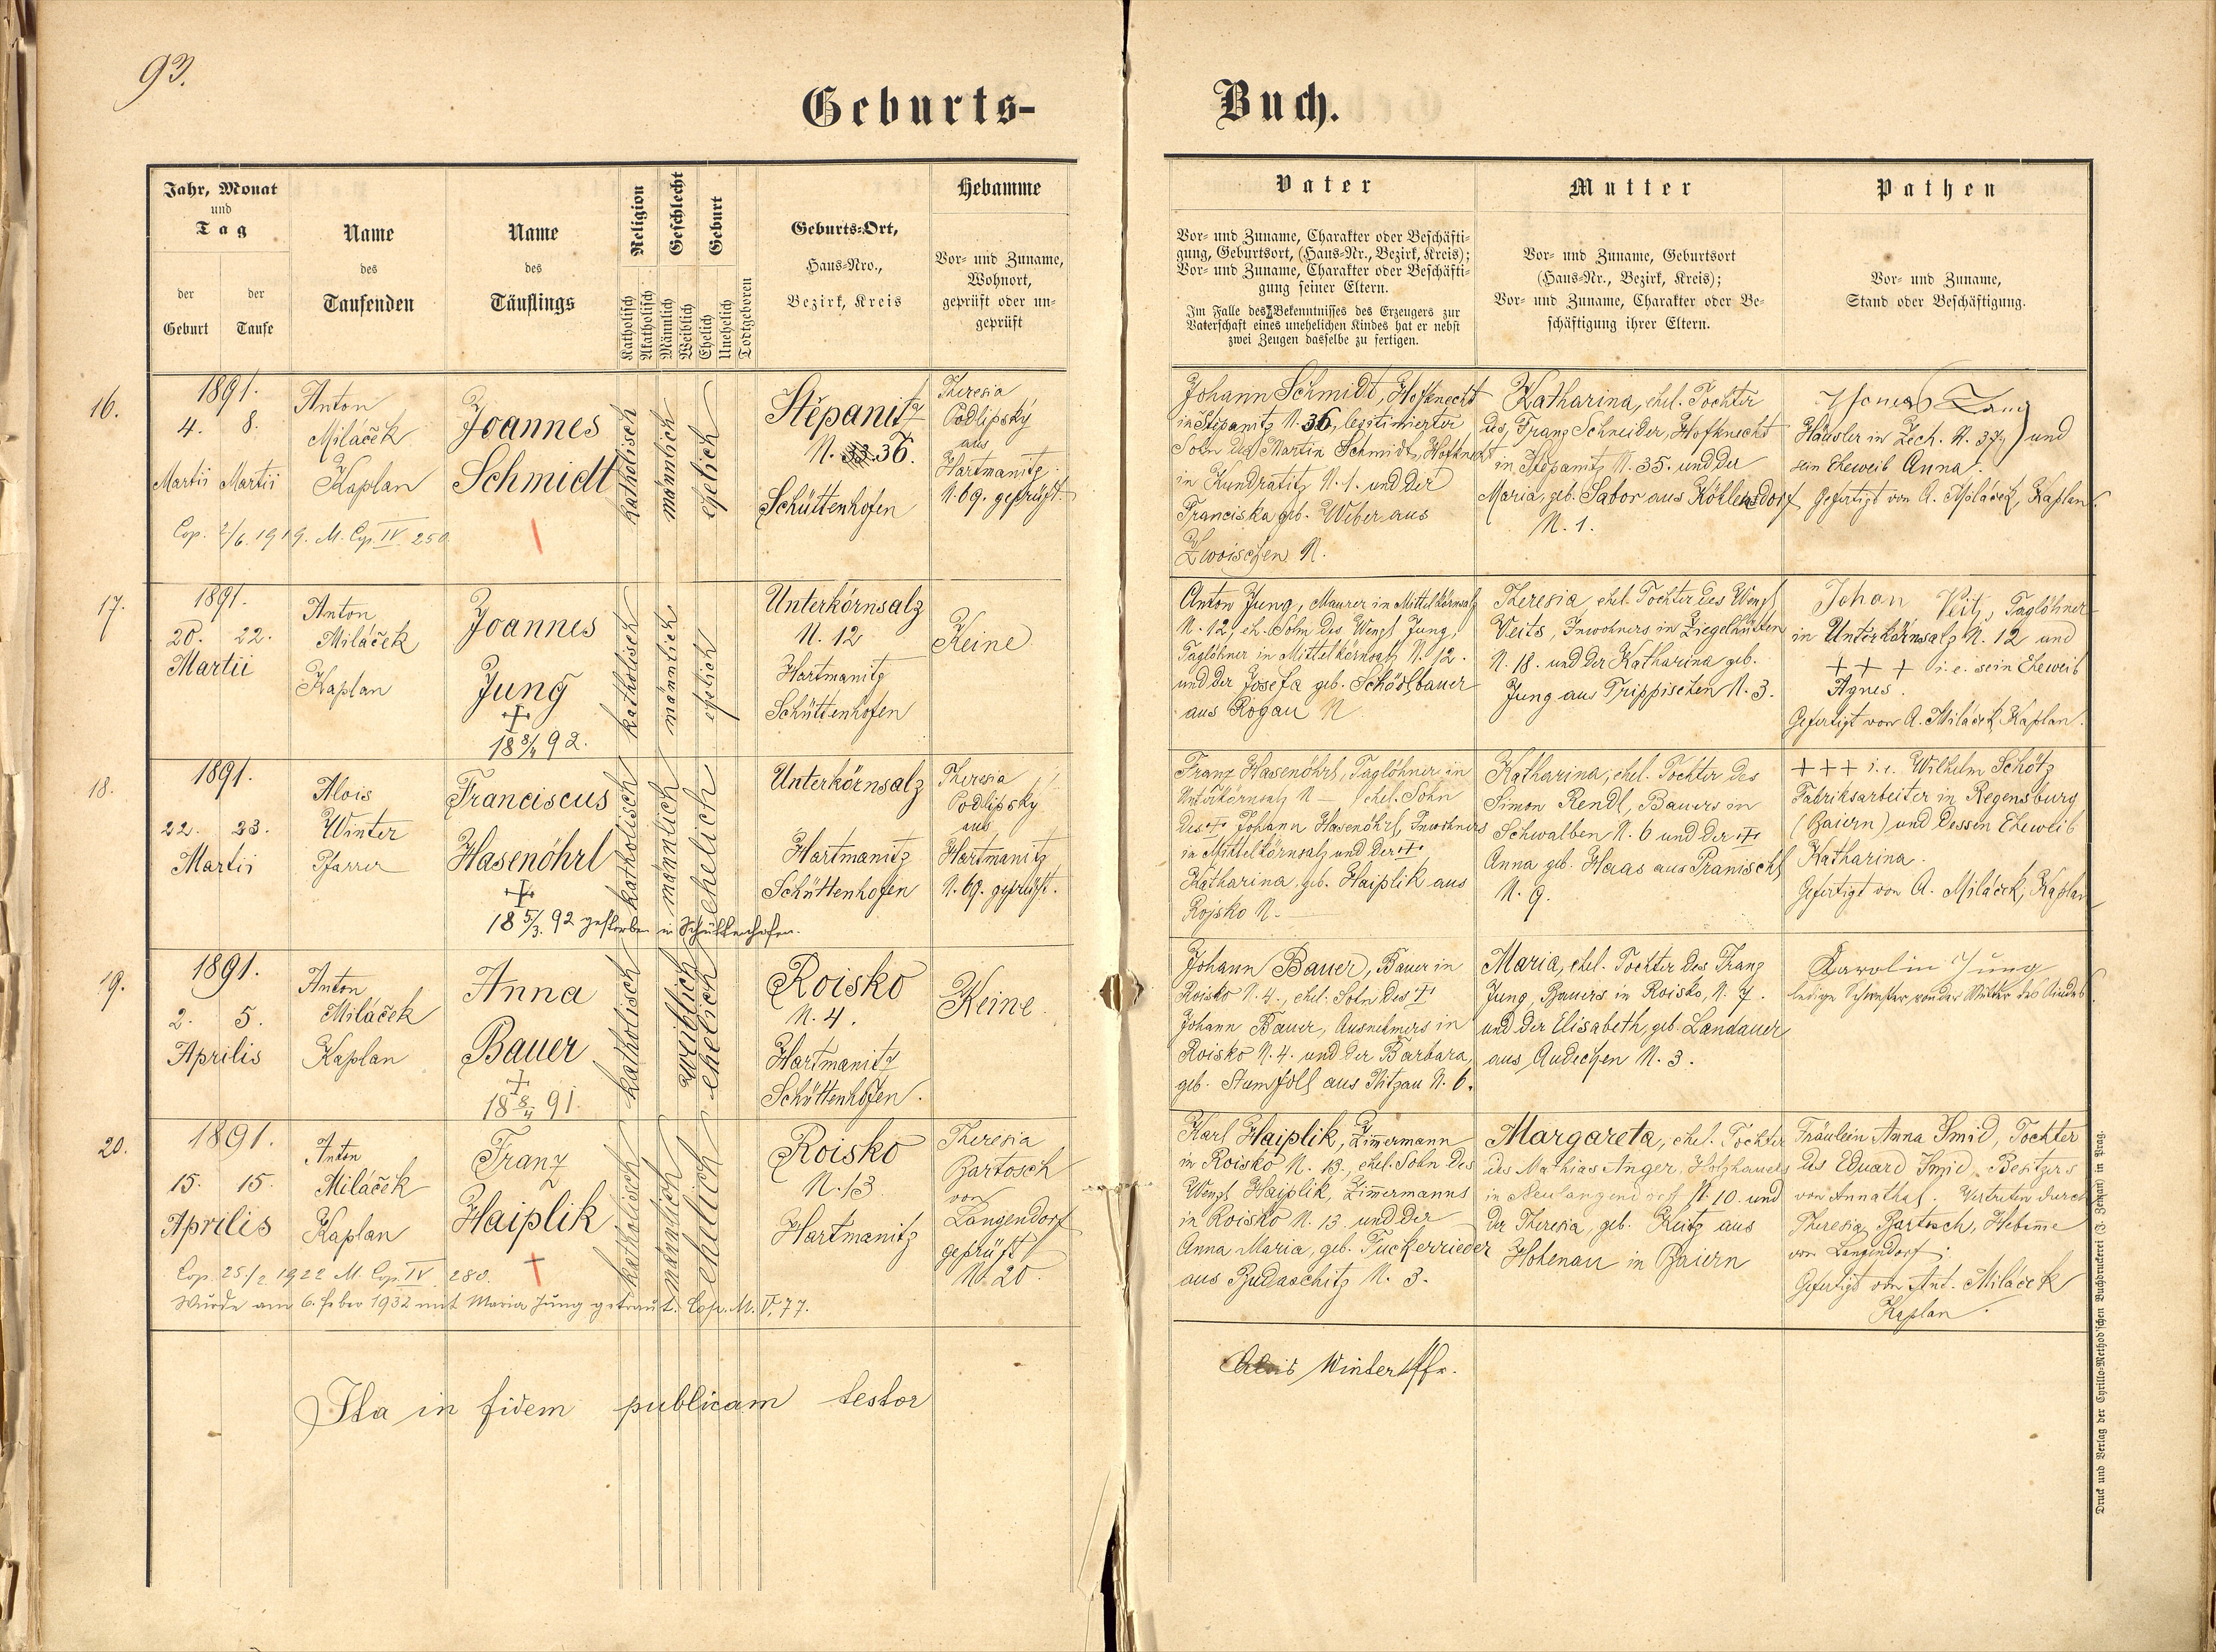 93.
Geburts-
Buch.
Jahr, Monat
und
Tag
der
Geburt
der
Taufe
Name
des
Taufenden
Name
des
Täuflings
Religion
Katholisch
Akatholisch
Geschlecht
Männlich
Weiblich
Geburt
Ehelich
Unehelich
Todtgeboren
Geburts-Ort,
Haus-Nro.,
Bezirk, Kreis
Hebamme
Vor- und Zuname,
Wohnort,
geprüft oder un-
geprüft
Vater
Vor- und Zuname, Charakter oder Beschäfti-
gung, Geburtsort, (Haus-Nr., Bezirk, Kreis);
Vor- und Zuname, Charakter oder Beschäfti-
gung seiner Eltern.
Im Falle des Bekenntnisses des Erzeugers zur
Vaterschaft eines unehelichen Kindes hat er nebst
zwei Zeugen dasselbe zu fertigen.
Mutter
Vor- und Zuname, Geburtsort
(Haus-Nr., Bezirk, Kreis);
Vor- und Zuname, Charakter oder Be-
schäftigung ihrer Eltern.
Pathen
Vor- und Zuname,
Stand oder Beschäftigung.
16.
1891.
4. 8.
Martii Martii
Anton
Miláček
Kaplan
Joannes
Schmidt
katholisch
männlich
ehelich
Stěpanitz
N. 36.
Schüttenhofen
Theresia
Podlipský
aus
Hartmanitz
N. 69. geprüft.
Cop. 2/6. 1919. M. Cop. IV. 250.
Johann Schmidt, Hofknecht
in Stěpanitz N. 36, legitimierter
Sohn des Martin Schmidt, Hofknecht
in Kundratitz N. 1. und der
Franciska geb. Weber aus
Zwoischen N.
Katharina, ehel. Tochter
des Franz Schneider, Hofknecht
in Stěpanitz N. 35. und der
Maria, geb. Sabor aus Köhlendorf
N. 1.
Häusler in Zech. N. 37 und
sein Eheweib Anna.
Gefertigt von A. Miláček, Kaplan.
17.
1891.
20. 22.
Martii
Anton
Miláček
Kaplan
Joannes
Jung
18 8/4 92.
katholisch
männlich
ehelich
Unterkörnsalz
N. 12
Hartmanitz
Schüttenhofen
Keine
Anton Jung, Maurer in Mittelkörnsalz
N. 12, eh. Sohn des Wenzl Jung,
Taglöhner in Mittelkörnsalz N. 12.
und der Josefa geb. Schödlbauer
aus Rogau N
Theresia, ehel. Tochter des Wenzl
Veits, Inwohners in Ziegelhütten
N. 18. und der Katharina geb.
Jung aus Trippischen N. 3.
Johan Veitz, Taglöhner
in Unterkörnsalz N. 12 und
+ + + i. e. sein Eheweib
Agnes.
Gefertigt von A. Miláček, Kaplan.
18.
1891.
22. 23.
Martii
Alois
Winter
Pfarrer
Franciscus
Hasenöhrl
18 5/3. 92 gestorben in Schüttenhofen.
katholisch
männlich
ehelich
Unterkörnsalz
Hartmanitz
Schüttenhofen
Theresia
Podlipsky
aus
Hartmanitz
N. 69. geprüft.
Franz Hasenöhrl, Taglöhner in
Unterkörnsalz N — ehel. Sohn
des + Johann Hasenöhrl, Inwohners
in Mittelkörnsalz und der +
Katharina, geb. Haiplik aus
Rojsko N. —
Katharina, ehel. Tochter des
Simon Rendl, Bauers in
Schwalben N. 6 und der +
Anna geb. Haas aus Pranischl
N. 9.
+ + + i. e. Wilhelm Schötz
Fabriksarbeiter in Regensburg
(Baiern) und dessen Eheweib
Katharina.
Gefertigt von A. Miláček, Kaplan
19.
1891.
2. 5.
Aprilis
Anton
Miláček
Kaplan
Anna
Bauer
18 8/4 91.
katholisch
weiblich
ehelich
Roisko
N. 4.
Hartmanitz
Schüttenhofen.
Keine.
Johann Bauer, Bauer in
Roisko N. 4., ehel. Sohn des +
Johann Bauer, Ausnehmers in
Roisko N. 4. und der Barbara,
geb. Stumfoll aus Nitzau N. 6.
Maria, ehel. Tochter des Franz
Jung, Bauers in Roisko, N. 7.
und der Elisabeth, geb. Landauer
aus Audechen N. 3.
Karolin Jung
ledige Schwester von der Mutter des Kindes.
20.
1891.
15. 15.
Aprilis
Anton
Miláček
Kaplan
Franz
Haiplik
katholisch
männlich
ehelich
Roisko
N. 13
Hartmanitz
Theresia
Bartosch
von
Langendorf
geprüft
N. 20.
Cop. 25./2 1922 M. Cop. IV 280.
Wurde am 6. Feber 1932 mit Maria Jung getraut. Cop. M. V, 77.
Karl Haiplik, Zimmermann
in Roisko N. 13., ehel. Sohn des
Wenzl Haiplik, Zimmermanns
in Roisko N. 13 und der
Anna Maria, geb. Tuckerrieder
aus Budaschitz N. 3.
Margareta, ehel. Tochter
des Mathias Anger, Holzhauers
in Neulangendorf N. 10. und
der Theresia, geb. aus
Hohenau in Baiern
Fräulein Anna Smid, Tochter
des Eduard Smid, Besitzers
von Annathal. Vertreten durch
Theresia Bartosch, Hebame
von Langendorf.
Gefertigt von Ant. Miláček
Kaplan.
Ita in fidem publicam testor
Alois Winter Pfr.
Druck und Verlag der Cyrillo-Method'schen Buchdruckerei (J. Zeman) in Prag.